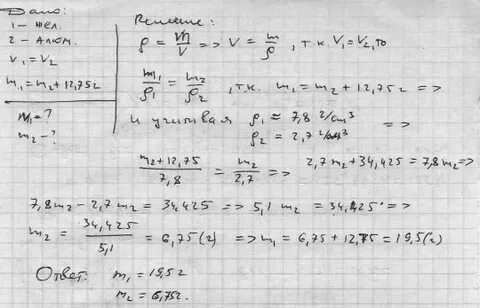 Дано:
1 - жел.
2 - алюм.
V₁ = V₂
m₁ = m₂ + 12,75 г
m₁ = ?
m₂ - ?
Решение:
ρ = m/V => V = m/ρ , т.к. V₁ = V₂, то
m₁/ρ₁ = m₂/ρ₂ , т.к. m₁ = m₂ + 12,75 г =>
и учитывая ρ₁ = 7,8 г/см³
ρ₂ = 2,7 г/см³ =>
(m₂ + 12,75)/7,8 = m₂/2,7 => 2,7 m₂ + 34,425 = 7,8 m₂ =>
7,8 m₂ - 2,7 m₂ = 34,425 => 5,1 m₂ = 34,425 =>
m₂ = 34,425/5,1 = 6,75 (г) => m₁ = 6,75 + 12,75 = 19,5 (г)
Ответ: m₁ = 19,5 г
m₂ = 6,75 г.